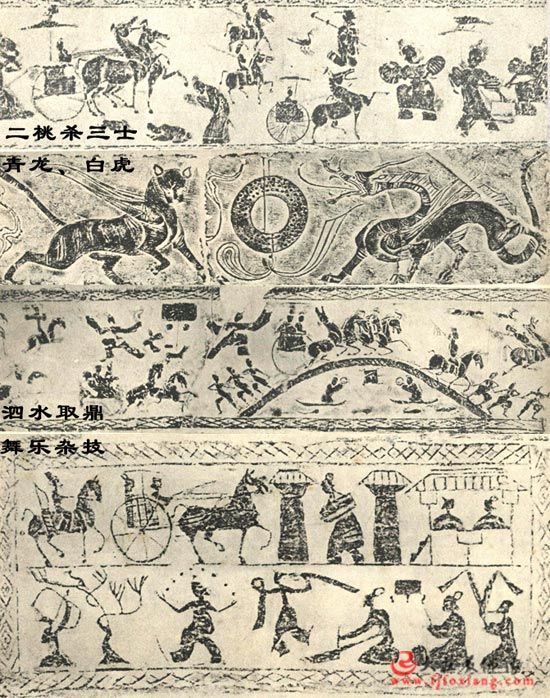 二桃杀三士
青龙、白虎
泗水取鼎
舞乐杂技
www.fjfoxiang.com